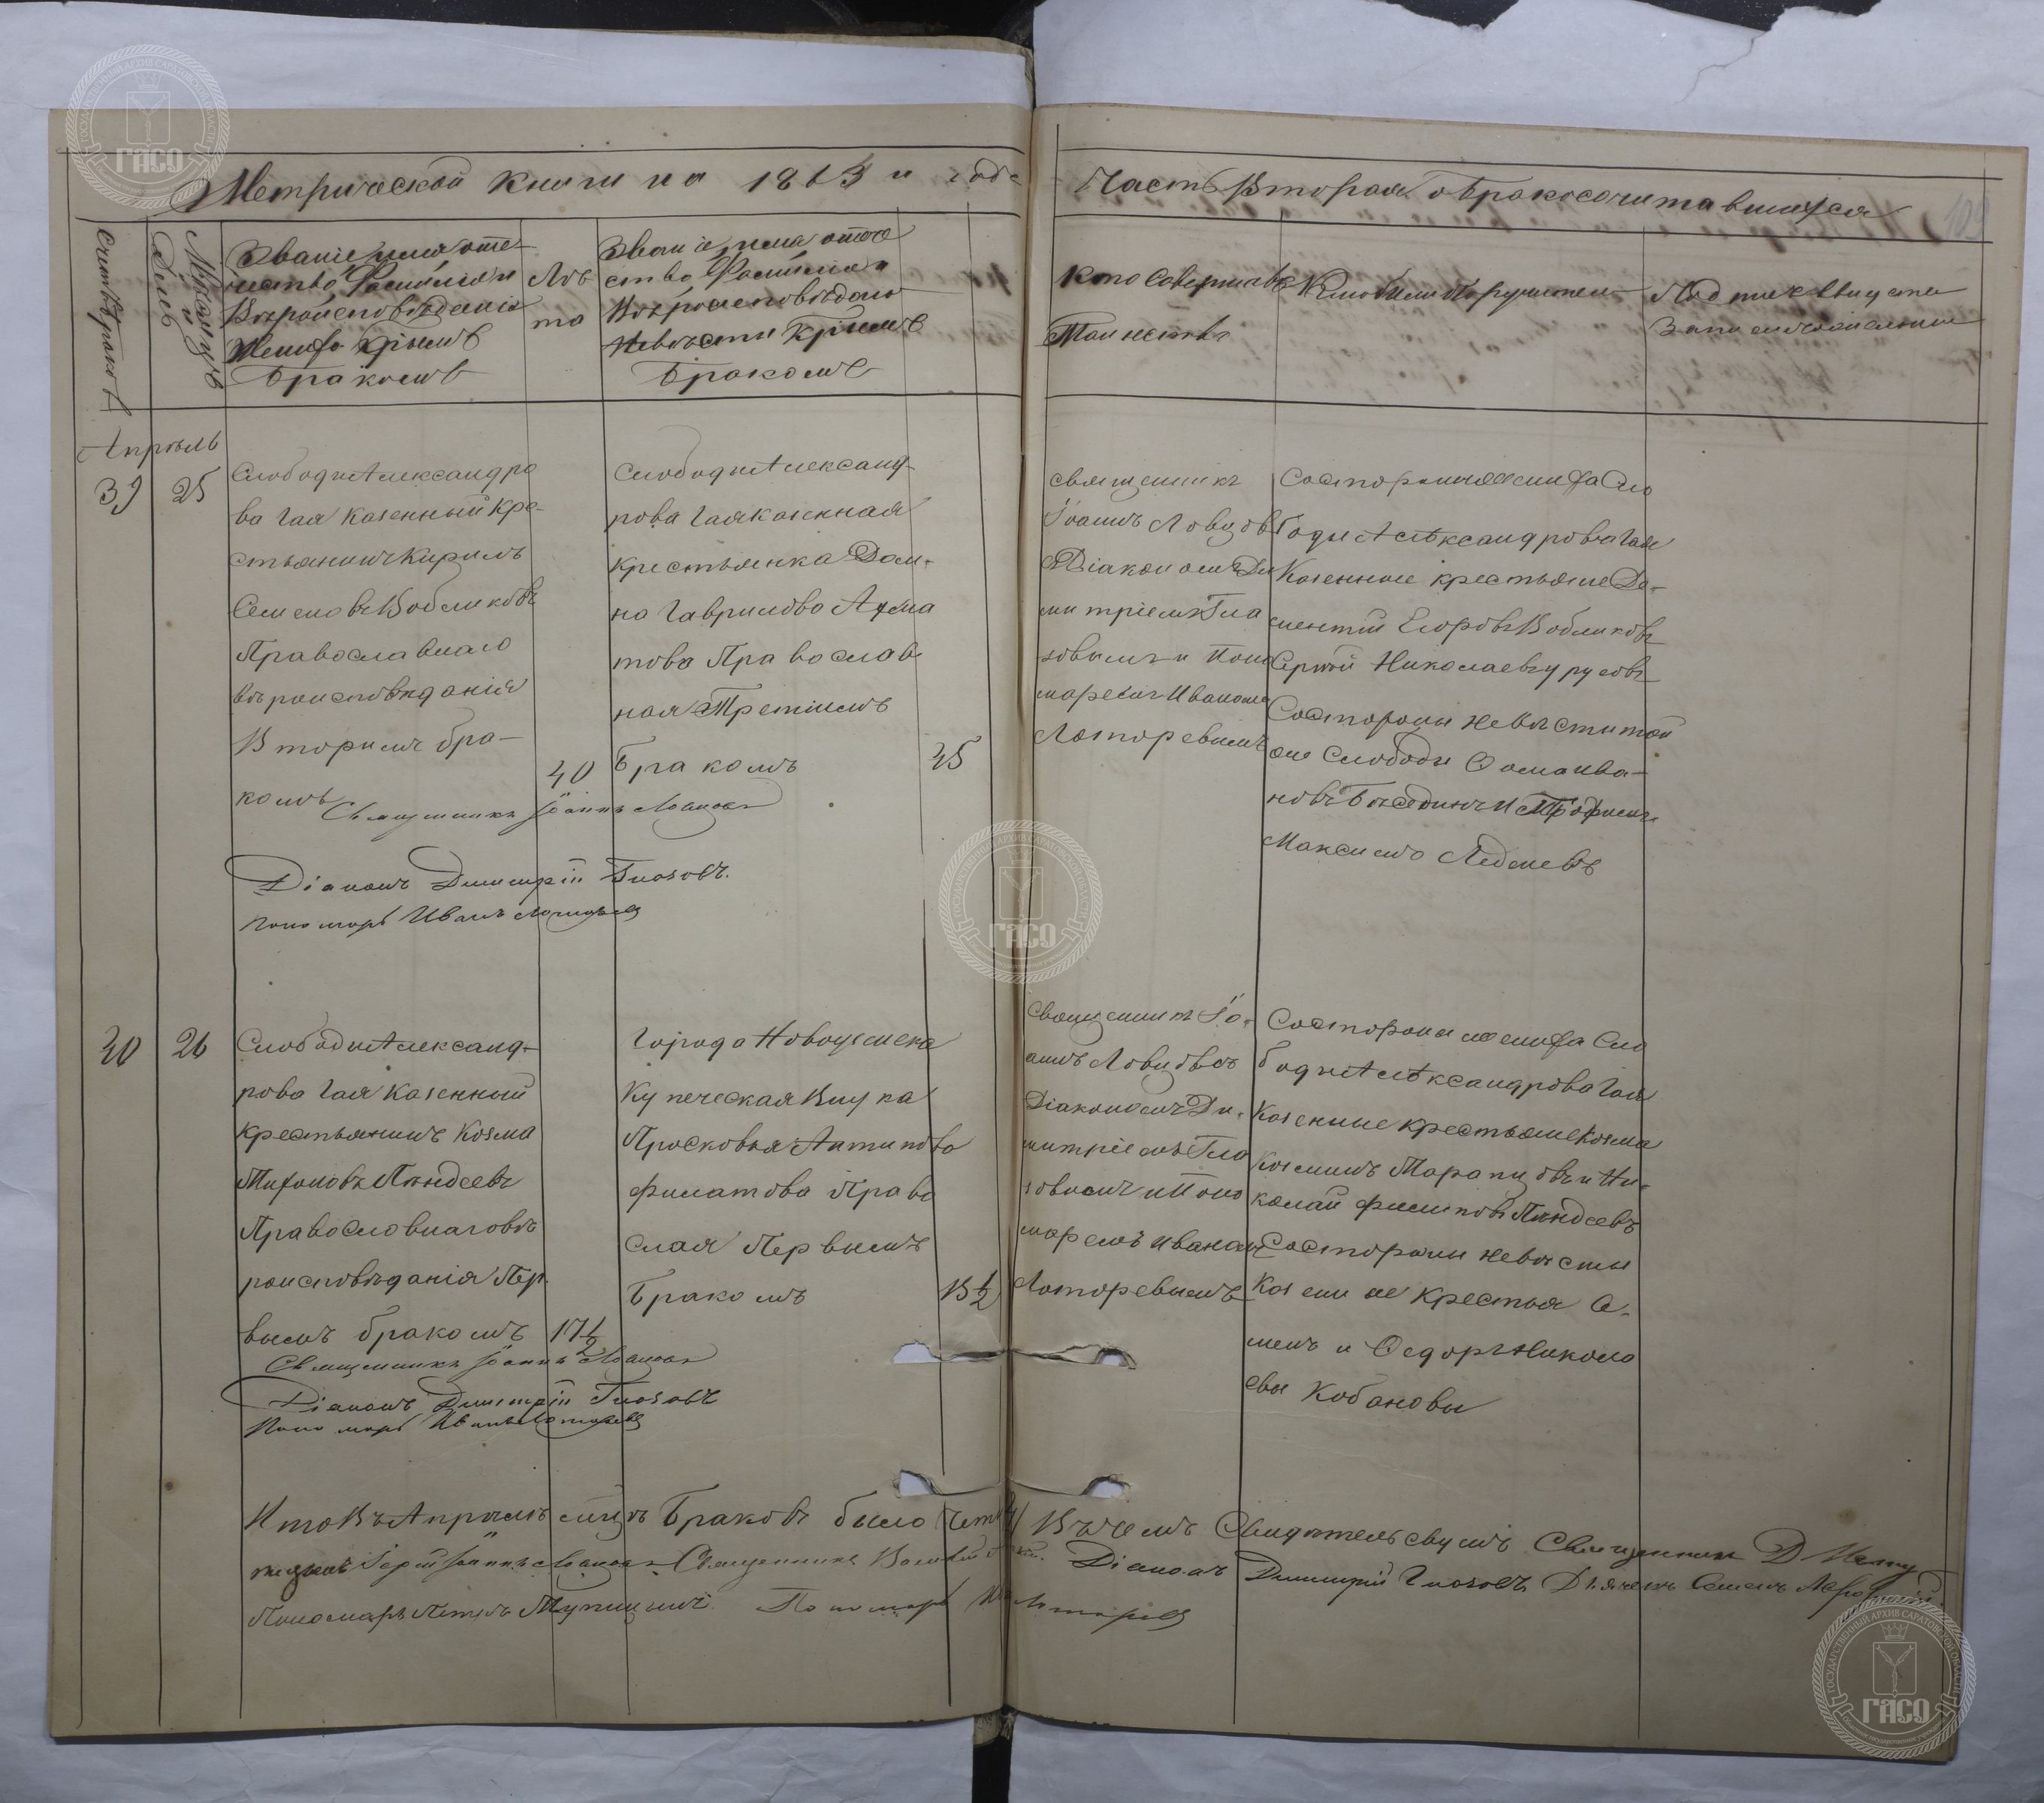 Метрической книги на 1863 й годъ
Часть Вторая о бракосочитавшихся
103
Счетъ браковъ
Мѣсяцъ и День
Званіе имя отче-
чество Фамилія и
Вѣроисповѣданіе
Жениха и коимъ
Бракомъ
Лѣ
та
Званіе, имя отче
ство Фамилія и
Вѣроисповѣдані
Невѣсты и коимъ
Бракомъ
Кто совершалъ
Таинство
Кто были Поручители
Подписи свидѣте
Запи
Апрѣль
39
25
Слободы Александро
ва Гая казенный кре-
стьянинъ Кирилъ
Семеновъ Вобликовъ
Православнаго
вѣроисповѣданія
Вторымъ бра-
комъ
40
Слободы Александ-
рова Гая казенная
крестьянка Дом-
на Гаврилова
Православ
ная Третіимъ
Бракомъ
45
Священникъ
Іоаннъ Ловцовъ
съ Діакономъ Ди
митріемъ Гла
зовымъ и Поно
маремъ Иваномъ
Лоторевымъ
Со стороны жениха Сло
боды Александрова Гая
Казенные крестьяне До-
ментій Егоровъ Вобликовъ
Сергѣй Николаевъ
Со стороны невѣсты той
же Слободы Фома Ива-
новъ Бѣсединъ и Трофимъ
Максимовъ Ледяевъ
Священникъ Іоаннъ Ловцовъ
Діаконъ Димитрій Глазовъ.
Пономарь Иванъ Лоторевъ
40
26
Слободы Александ-
рова Гая Казенный
крестьянинъ Козма
Мироновъ Пяндеевъ
Православнаго вѣ
роисповѣданія Пер-
вымъ бракомъ
17½
Города Новоузенска
Купеческая Внука
Просковья Антипова
Филатова Право
слая Первымъ
Бракомъ
18½
Священникъ Іо-
аннъ Ловцовъ съ
Діакономъ Ди-
митріемъ Гла
зовымъ и Поно
маремъ Иваномъ
Лоторевымъ
Со стороны жениха Сло
боды Александрова Гая
Казенные крестьяне Козма
Козминъ Марапцовъ и Ни-
колай Филиповъ Пяндеевъ
Со стороны невѣсты
Казенные крестья Се-
менъ и Федоръ Никола
евы Кобановы
Священникъ Іоаннъ Ловцовъ
Діаконъ Димитрій Глазовъ
Пономарь Иванъ Лоторевъ
Итого Въ Апрѣлѣ мѣсяцѣ Браковъ было
Въ чемъ Свидѣтельствуемъ Священникъ Д
Іерей Іоаннъ Ловцовъ Священникъ Василій
Діаконъ Димитрій Глазовъ Дьячекъ Семенъ
Пономарь Петръ Пономарь Лоторевъ
ГОСУДАРСТВЕННЫЙ АРХИВ САРАТОВСКОЙ ОБЛАСТИ
ГАСО